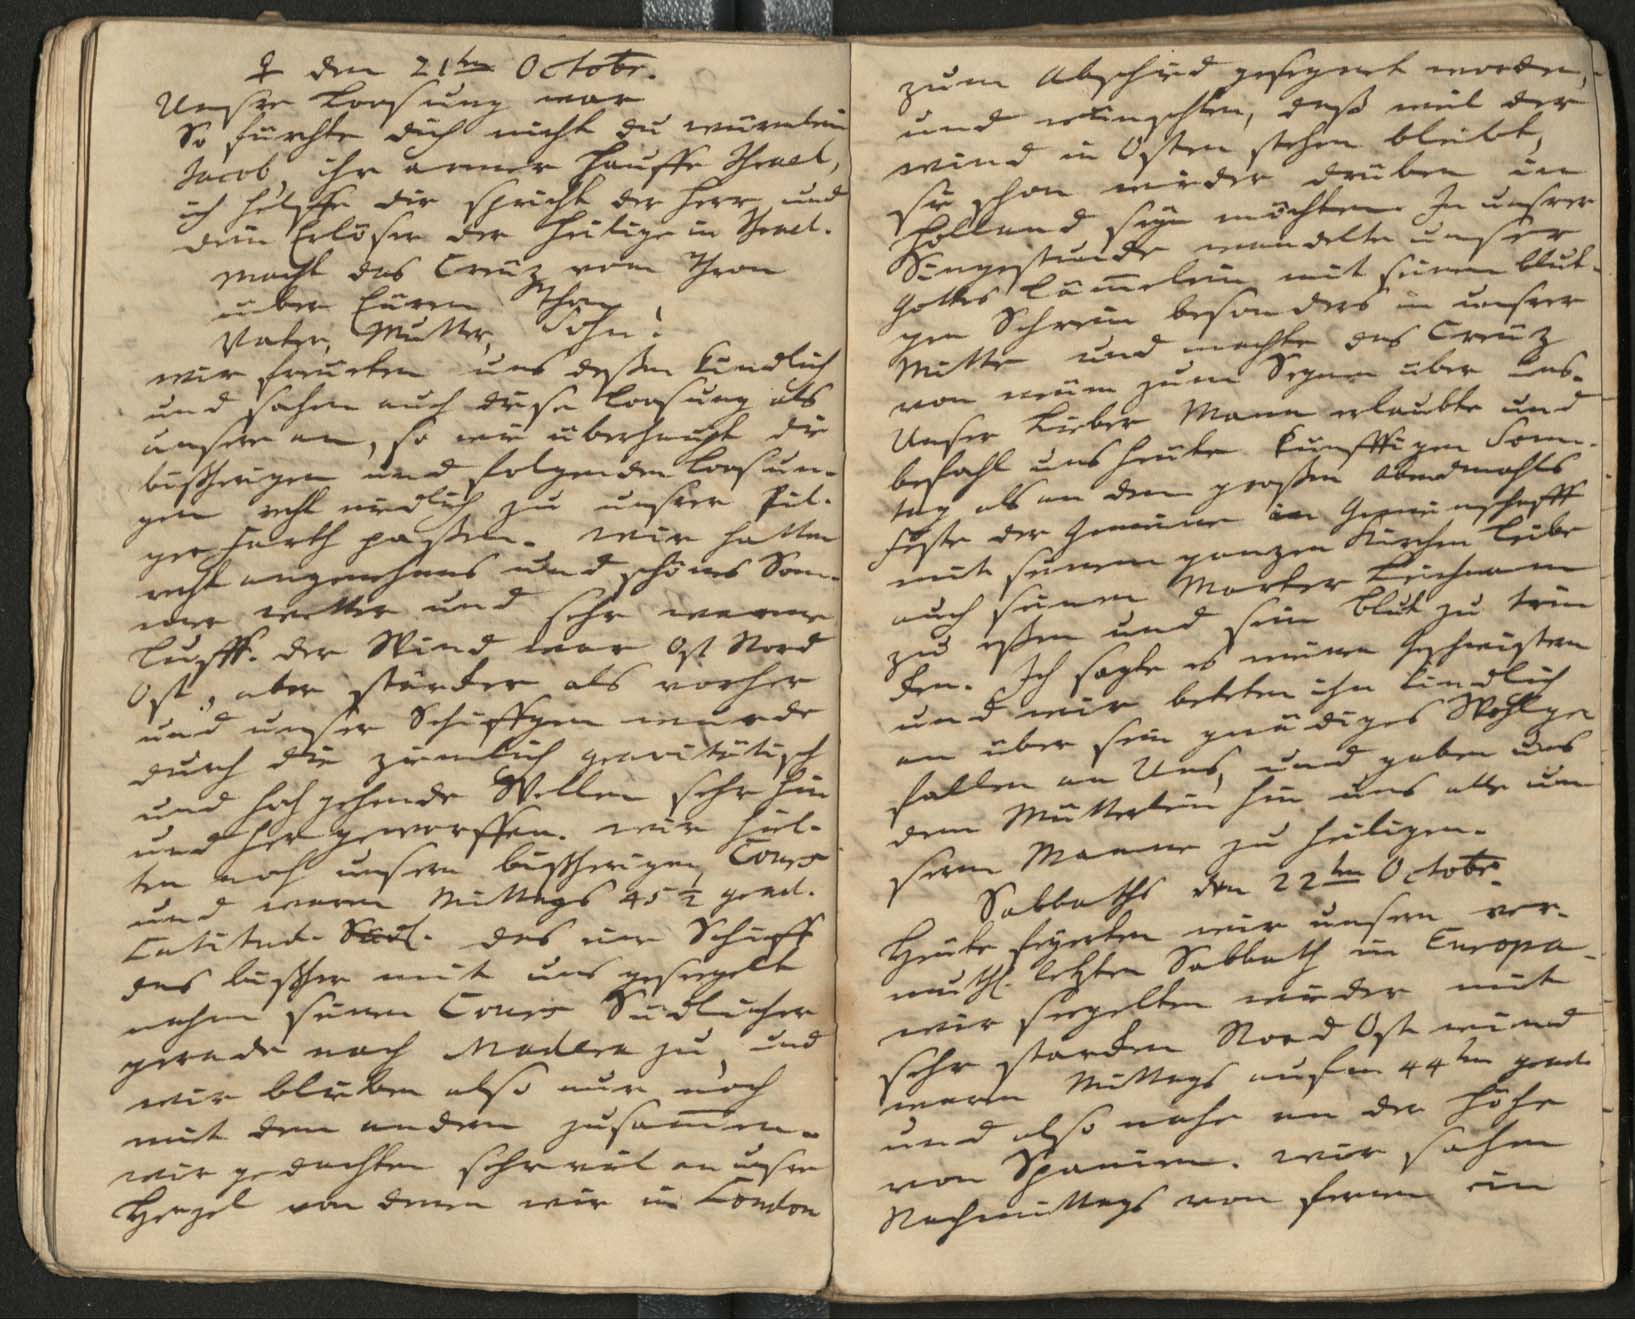 ♀ den 21ten Octobr.
Unsre Loosung war
So fürchte dich nicht du würmlein
Jacob, ihr armer Hauffe Israel,
ich helffe dir spricht der Herr und
dein Erlöser der Heilige in Israel.
macht das Creuz vom Thron
über Euren Than
Vater, Mutter, Sohn!
wir freueten uns deßen kindlich
und sahen auch diese Loosung als
unsere an, so wie überhaupt die
bißherigen und folgenden Loosun-
gen recht niedlich zu unsrer Pil-
ger Farth paßen. wir hatten
recht angenehmes und schönes Som-
mer wetter und sehr warme
Lufft. der Wind war Ost Nord
Ost, aber stärcker als vorher
und unser Schiffgen wurde
durch die ziemlich gravitätisch
und hoch gehende Wellen sehr hin
und her geworffen. wir hiel-
ten noch unsern bißherigen Cours
und waren Mittags 45 1/2 grad.
Latitud. das eine Schiff
das bißher mit uns gesegelt
nahm seinen Cours Südlicher
gerade nach Madera zu, und
wir blieben also nur noch
mit dem andern zusam̅en.
wir gedachten sehr viel an unsre
Herzel von denen wir in London
zum Abschied gesegnet worden,
und wünschten, daß weil der
wind in Osten stehen bleibt,
sie schon wieder drüben in
Holland seyn möchten. In unsrer
Singestunde wandelte unser
Gottes Läm̅elein mit seinem blut-
gen Schrein besonders in unsrer
Mitte und machte das Creuz
von neuem zum Segnen über uns.
Unser Lieber Mann erlaubte und
befahl uns heute künfftigen Sonn-
tag als an dem großen Abendmahls
Feste der Gemeine in Gemeinschafft
mit seinem ganzen Kirchen Leibe
auch seinen Marter Leichnam
zu eßen und sein Blut zu trin
cken. Ich sagte es meinen Geschwistern
und wir beteten ihn kindlich
an über sein gnädiges Wohlge
fallen an Uns, und gaben uns
dem Mütterlein hin uns alle un
serm Manne zu heiligen.
Sabbaths den 22ten Octobr.
Heute feyerten wir unsern ver-
muthl. letzten Sabbath in Europa.
wir segelten wieder mit
sehr starcken Nord Ost wind
waren Mittags aufm 44ten grad
und also nahe an der Höhe
von Spanien. wir sahen
Nachmittags von fernen ein